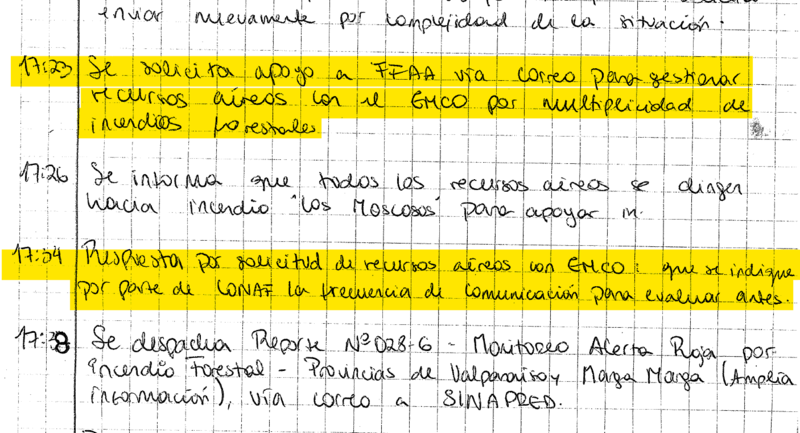 enviar nuevamente por complejidad de la situación.
17:23 Se solicita apoyo a FFAA vía correo para gestionar
recursos aéreos con el EMCO por multiplicidad de
incendios forestales
17:26 Se informa que todos los recursos aéreos se dirigen
hacia incendio "Los Moscosos" para apoyar
17:34 Respuesta por solicitud de recursos aéreos con EMCO: que se indique
por parte de CONAF la frecuencia de comunicación para evaluar antes.
17:38 Se despacha Reporte Nº028-G - Monitoreo Alerta Roja por
Incendio Forestal - Provincias de Valparaíso y Marga Marga (Amplia
información), vía correo a SINAPRED.